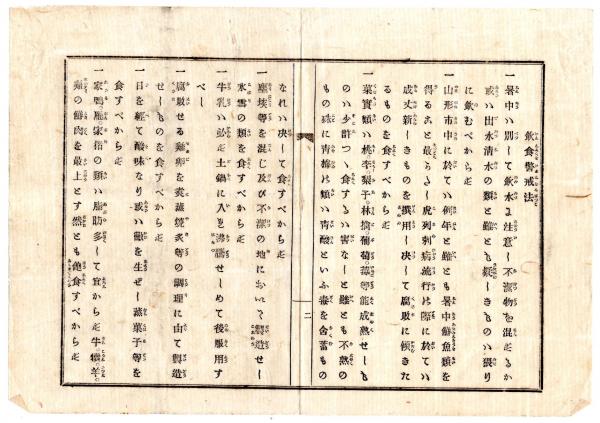 飲食警戒法
一暑中ハ別して飲水よ注意し不潔物を混ざるか
或ハ出水清水の類と雖とも疑しきものハ猥り
に飲むべからず
一山形市中に於てハ例年と雖とも暑中鮮魚類を
得ること最も多し虎列剌病流行の際に於てハ
成丈新しきものを撰用し决して腐敗に傾きた
るものを食すべからず
一菓實類ハ桃李梨子林檎葡萄苺等能成熟せしも
のハ少許づゝ食するハ害なしと雖とも不熟の
もの殊に青梅の類ハ青酸といふ毒を含蓄もの
なれハ决して食すべからず
一塵埃等を混じ及び不潔の地において造せし
氷雪の類を食すべからず
一牛乳ハ必ず土鍋に入を沸騰せしめて後服用す
べし
一腐敗せる鷄卵を煮蒸燒炙等の調理に由て製造
せしものを食すべからず
一日を經て酸味なり或ハ黴を生ぜし蒸菓子等を
食すべからず
一家鴨鴈家猪の類ハ脂肪多して宜からず牛犢羊
鷄の鮮肉を最上とす然とも飽食すべからず
二